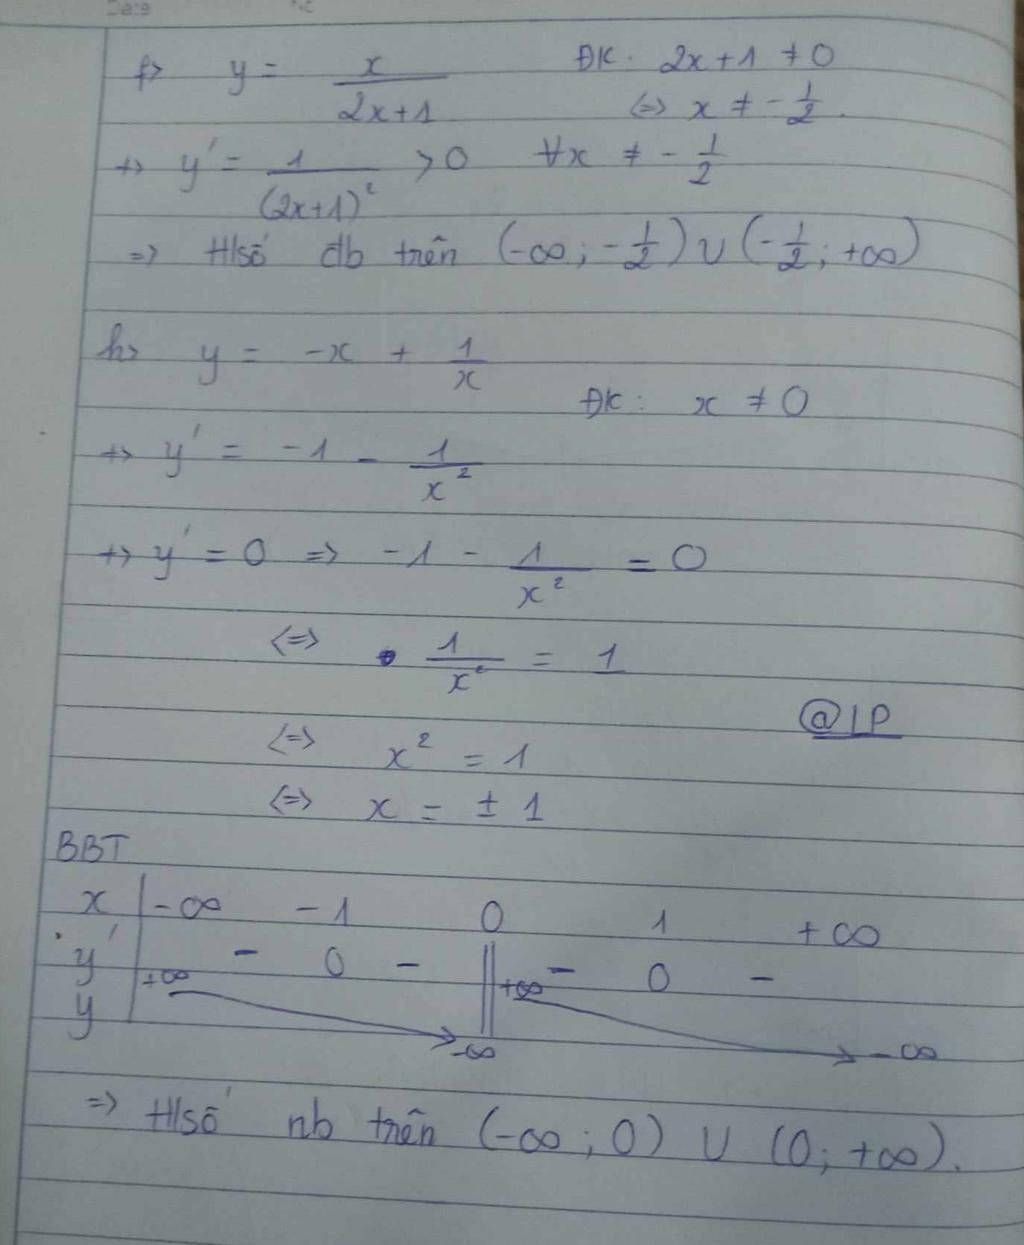 f> y = x/(2x+1) ĐK: 2x+1 ≠ 0
<=> x ≠ -1/2.
+> y' = 1/(2x+1)² > 0 ∀x ≠ -1/2
=> H/số đb trên (-∞; -1/2) ∪ (-1/2; +∞)
h> y = -x + 1/x
ĐK: x ≠ 0
+> y' = -1 - 1/x²
+> y' = 0 => -1 - 1/x² = 0
<=> 1/x² = 1
@LP
<=> x² = 1
<=> x = ± 1
BBT
x | -∞ -1 0 1 +∞
y' - 0 - || - 0 -
y +∞ -∞ || +∞ -∞
=> H/số nb trên (-∞; 0) ∪ (0; +∞).